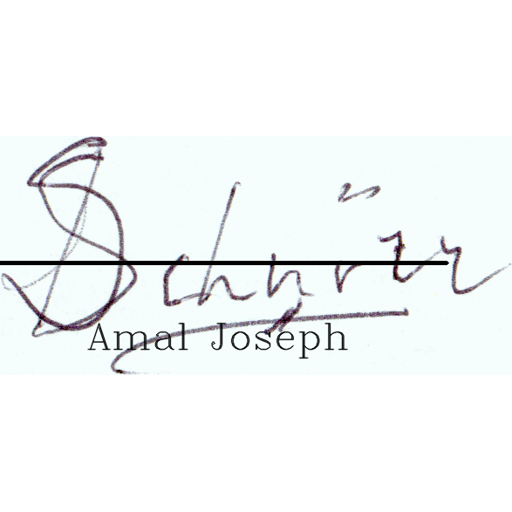 Schürer
Amal Joseph